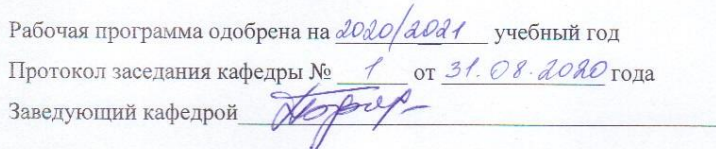 Рабочая программа одобрена на 2020/2021 учебный год
Протокол заседания кафедры № 1 от 31.08.2020 года
Заведующий кафедрой